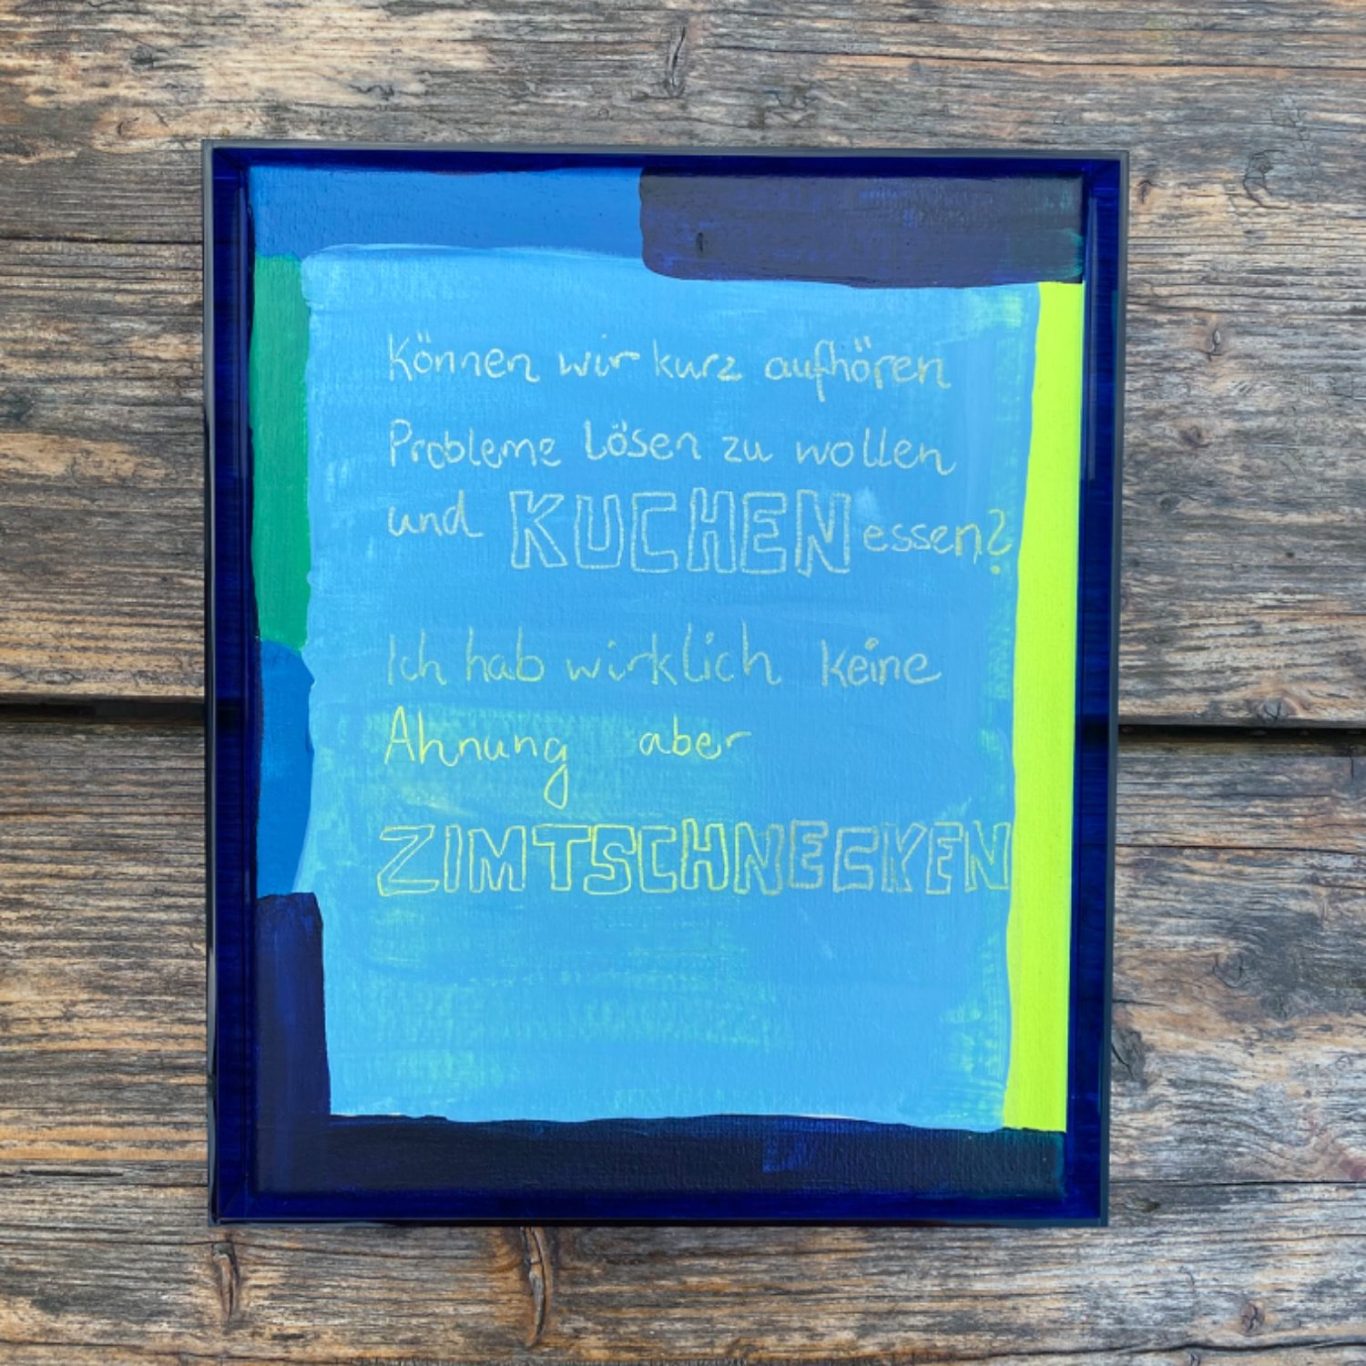 Können wir kurz aufhören
Probleme lösen zu wollen
und KUCHEN essen?
Ich hab wirklich keine
Ahnung aber
ZIMTSCHNECKEN